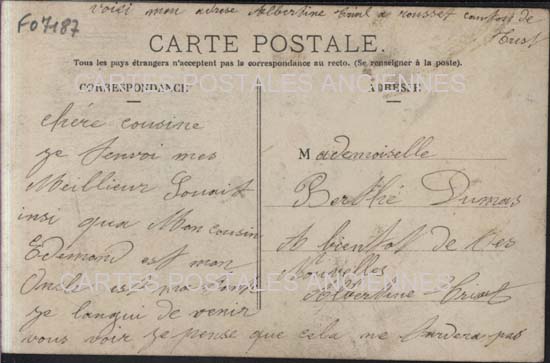 FO7187
voici mon adresse Albertine a rousset canton de
CARTE POSTALE.
Tous les pays étrangers n'acceptent pas la correspondance au recto. (Se renseigner à la poste).
CARTES POSTALES ANCIENNES
CORRESPONDANCE
ADRESSE
chére cousine
je tenvoi mes
Meilleur Souait
insi qua Mon cousin
Edmond est mon
Oncle est ma
je langui de venir
vous voir je pense que cela ne tardera pas
Mademoiselle
Berthé Dumas
A bientot de tes
Nouvelles
Albertine
CARTES POSTALES ANCIENNES